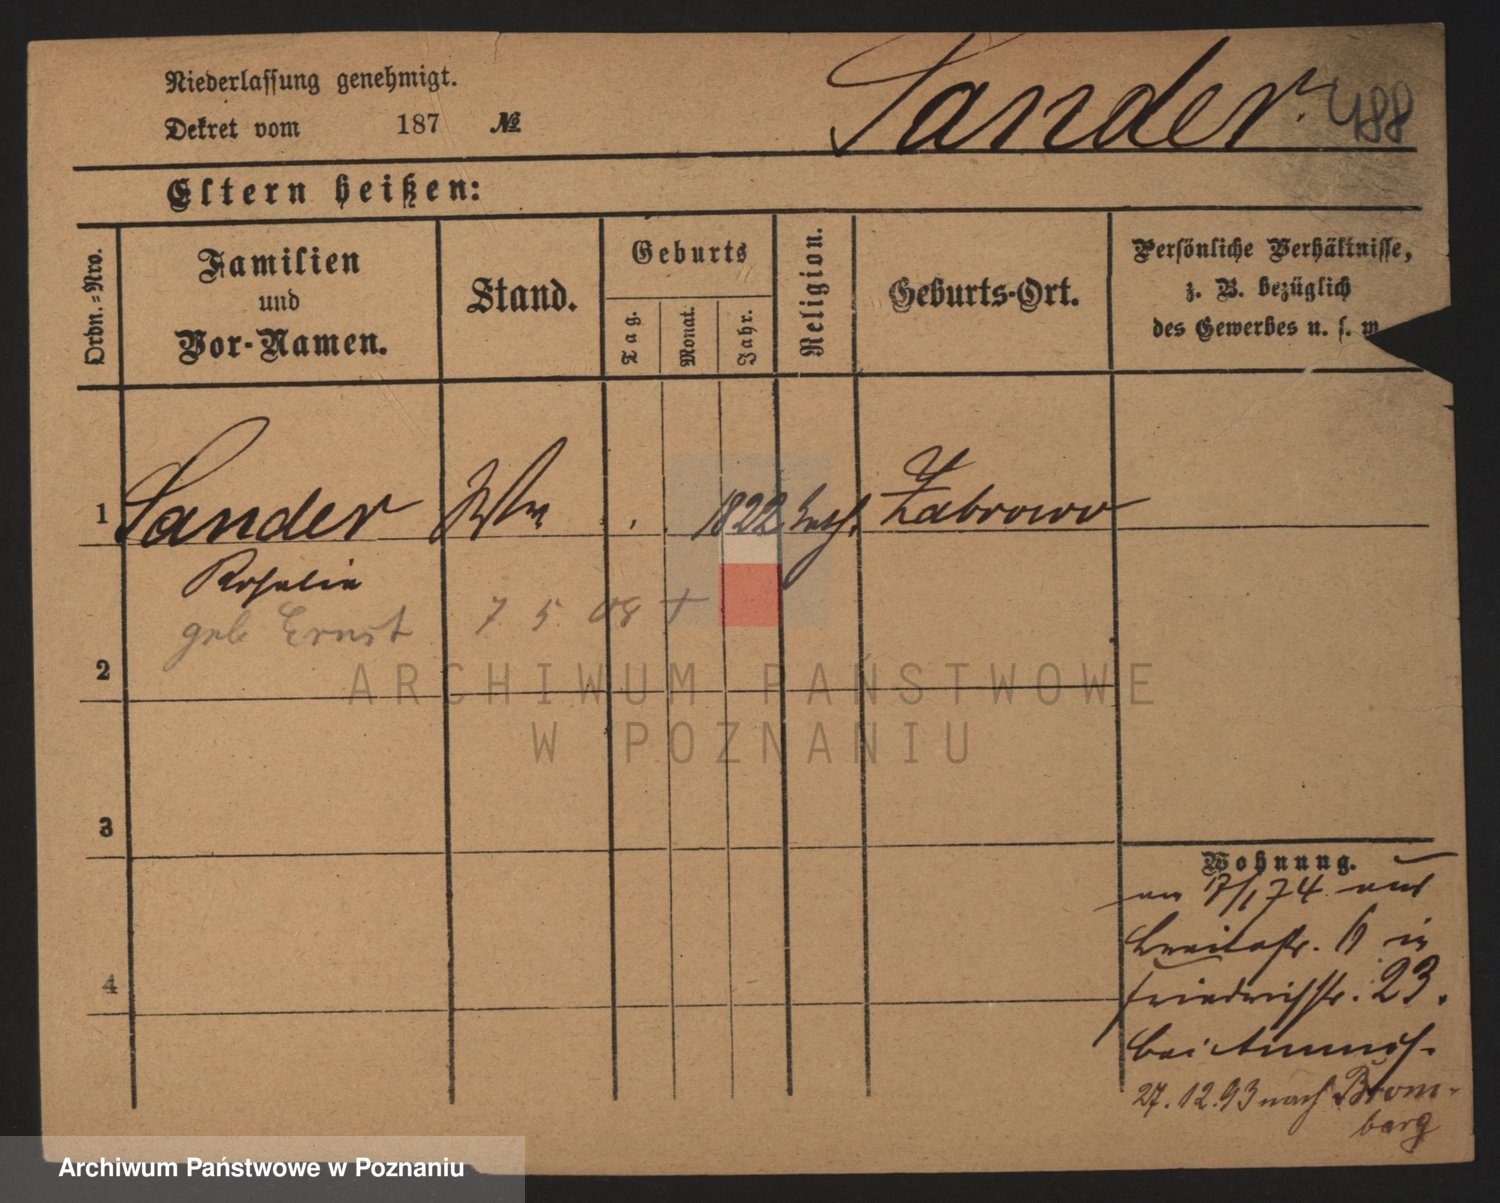 Niederlassung genehmigt.
Dekret vom 187 №
Sander. 488
Eltern heißen:
Ordn.-Nro.
Familien
und
Vor-Namen.
Stand.
Geburts
Tag.
Monat.
Jahr.
Religion.
Geburts-Ort.
Persönliche Verhältnisse,
z. B. bezüglich
des Gewerbes u. s. w.
1 Sander Ww 1822 kath. Zabrowo
Rosalie
geb Ernst 7 5 08 †
2
3
4
Wohnung.
am 7/1 74. aus
Breitestr. 6 in
Friedrichstr. 23.
bei
27.12.93 nach Brom-
berg
ARCHIWUM PAŃSTWOWE
W POZNANIU
Archiwum Państwowe w Poznaniu